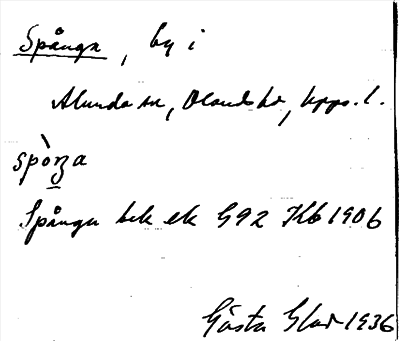 Spånga, by i
Alunda sn, Olands hd, Upps. l.
spòŋa
Spånga bek ek G92 Kb 1906
Gösta Glad 1936